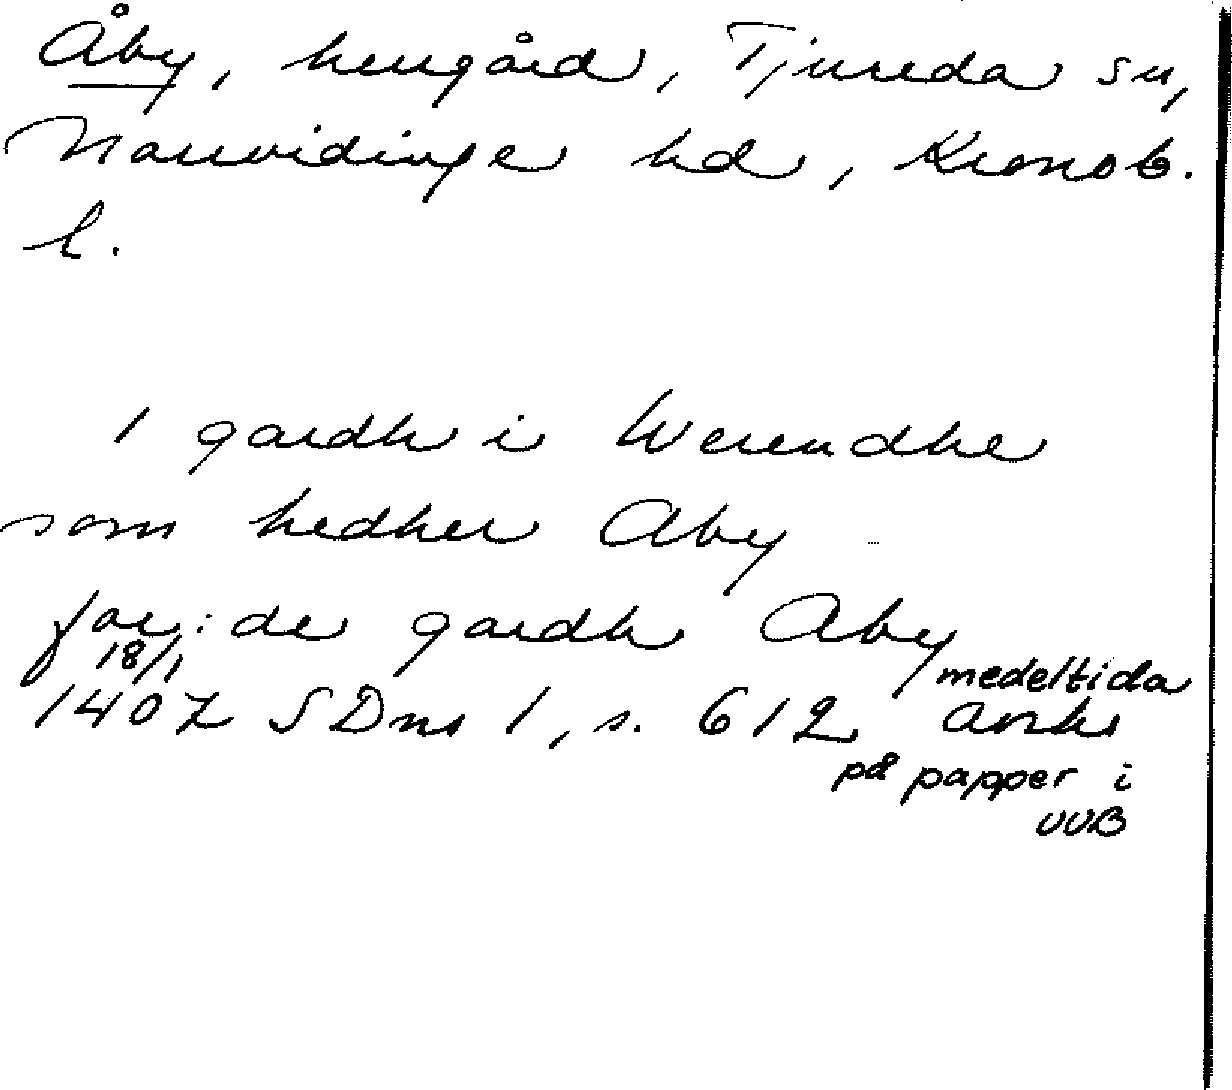 Åby, herrgård, Tjureda sn,
Norrvidinge hd, Kronob.
l.
1 gardh i Werendhe
som hedher Aby
jar: de gardh Aby
18/1
1407 SDns 1, s. 612 medeltida
avskr
på papper i
UUB